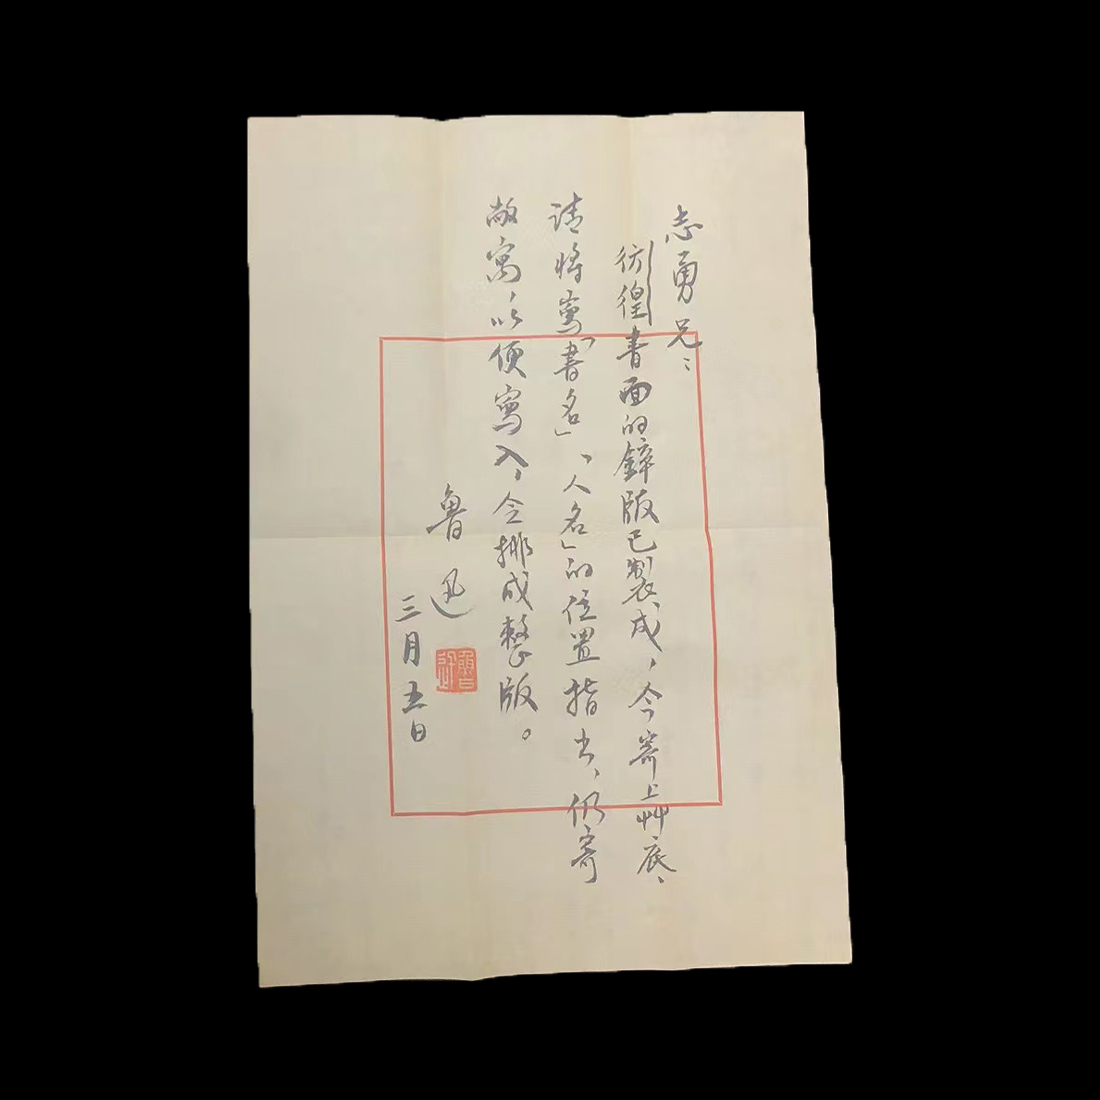 志勇兄：
彷徨書面的鋅版已製成，今寄上艸底、
請將寫「書名」、「人名」的位置指出，仍寄
敝寓以便寫入，令排成整版。
魯迅
三月五日
魯迅